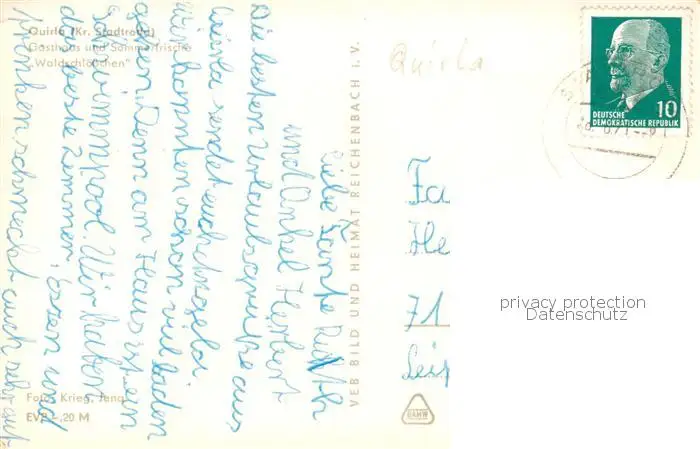 Quirla (Kr. Stadtroda)
Gasthaus und Sommerfrische
„Waldschlößchen“
Liebe Tante Ruth
und Onkel Herbert
Die besten Urlaubsgrüße aus
Quirla sendet euch
wir konnten schon viel baden
gehen. Denn am Haus ist ein
Schwimmpool. Wir haben
das beste Zimmer, essen und
trinken schmeckt auch sehr gut
Foto: Krieg, Jena
EVP -,20 M
VEB BILD UND HEIMAT REICHENBACH I. V.
Quirla
DEUTSCHE
DEMOKRATISCHE REPUBLIK
10
Fa
He
71
Leip
DAMW
privacy protection
Datenschutz